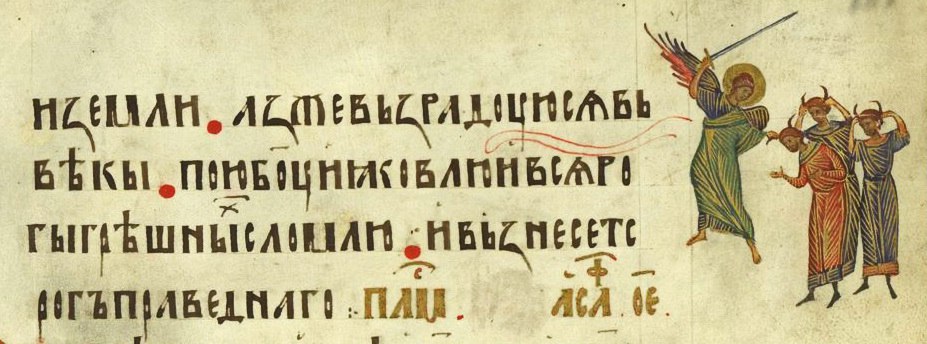 иꙁемли . аꙁжевьꙁрадоуюсѧвь
вѣкы . поюб҃оуиꙗковлюивсѧро
гыгрѣшныⷯ҇сломлю . ивьꙁнесетс
рогъправеднаго : пⷭ҇лм . асаⷴ҇ . о҃е .